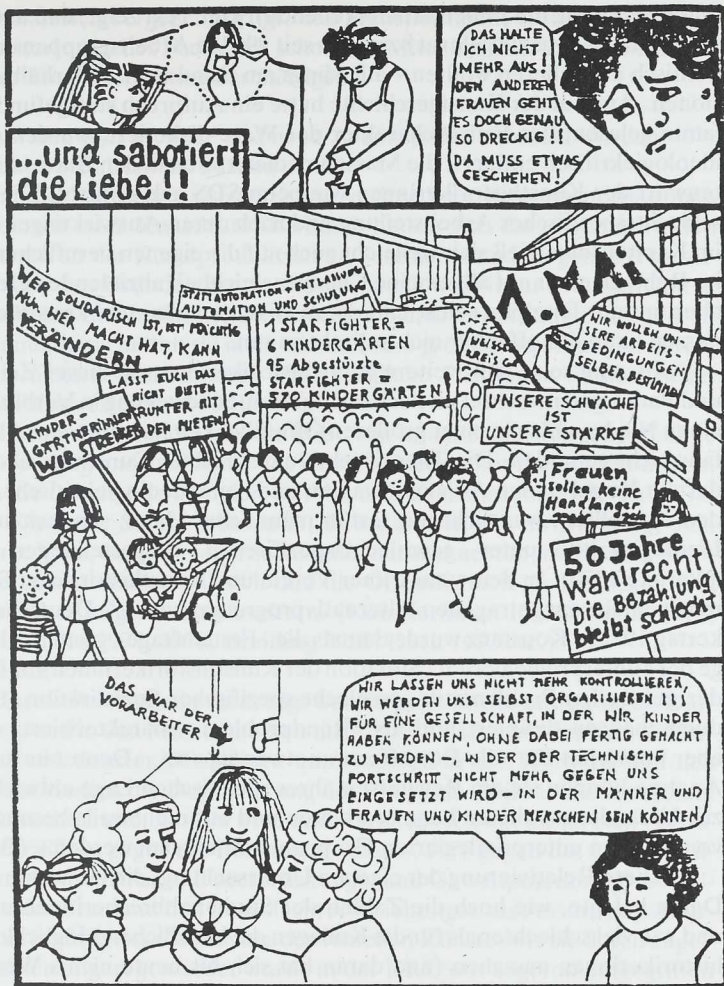 ...und sabotiert
die Liebe
DAS HALTE
ICH NICHT
MEHR AUS!
DEN ANDEREN
FRAUEN GEHT
ES DOCH GENAU
SO DRECKIG!
DA MUSS ETWAS
GESCHEHEN!
WER SOLIDARISCH IST, IST MÄCHTIG
NUR WER MACHT HAT, KANN
VERÄNDERN
STATT AUTOMATION + ENTLASSUNG
AUTOMATION UND SCHULUNG
1 STARFIGHTER =
6 KINDERGÄRTEN
95 Abgestürzte
STARFIGHTER =
570 KINDERGÄRTEN
KINDER-
GÄRTNERINNEN
WIR STREIKEN
LASST EUCH DAS
NICHT BIETEN
RUNTER MIT
DEN MIETEN
WIR WOLLEN UN
SERE ARBEITS-
BEDINGUNGEN
SELBER BESTIMMEN
UNSERE SCHWÄCHE
IST
UNSERE STÄRKE
Frauen
sollen keine
Handlanger
50 Jahre
Wahlrecht
Die Bezahlung
bleibt schlecht
DAS WAR DER
VORARBEITER
WIR LASSEN UNS NICHT MEHR KONTROLLIEREN,
WIR WERDEN UNS SELBST ORGANISIEREN
FÜR EINE GESELLSCHAFT, IN DER WIR KINDER
HABEN KÖNNEN, OHNE DABEI FERTIG GEMACHT
ZU WERDEN IN DER DER TECHNISCHE
FORTSCHRITT NICHT MEHR GEGEN UNS
EINGESETZT WIRD IN DER MÄNNER UND
FRAUEN UND KINDER MENSCHEN SEIN KÖNNEN!